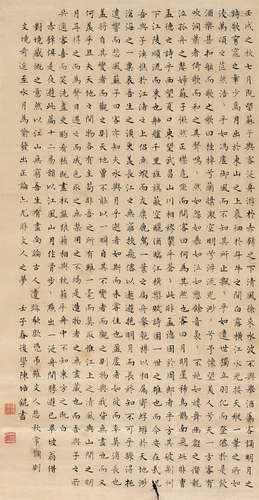 壬戌之秋七月既望蘇子與客泛舟游於赤壁之下清風徐來水波不興舉酒屬客誦明月之
詩歌窈窕之章少焉月出於東山之上徘徊於斗牛之間白露橫江水光接天縱一葦之所如
凌萬頃之茫然浩浩乎如馮虛御風而不知其所止飄飄乎如遺世獨立羽化而登仙於是飲
酒樂甚扣舷而歌之歌曰桂棹兮蘭槳擊空明兮泝流光渺渺兮予懷望美人兮天一方客有
吹洞簫者倚歌而和之其聲嗚嗚然如怨如慕如泣如訴餘音嫋嫋不絕如縷舞幽壑之潛蛟
泣孤舟之嫠婦蘇子愀然正襟危坐而問客曰何為其然也客曰月明星稀烏鵲南飛此非曹
孟德之詩乎西望夏口東望武昌山川相繆鬱乎蒼蒼此非孟德之困於周郎者乎方其破荊州
下江陵順流而東也舳艫千里旌旗蔽空釃酒臨江橫槊賦詩固一世之雄也而今安在哉況
吾與子漁樵於江渚之上侶魚蝦而友麋鹿駕一葉之扁舟舉匏樽以相屬寄蜉蝣於天地渺
滄海之一粟哀吾生之須臾羨長江之無窮挾飛仙以遨遊抱明月而長終知不可乎驟得託
遺響於悲風蘇子曰客亦知夫水與月乎逝者如斯而未嘗往也盈虛者如彼而卒莫消長也
蓋將自其變者而觀之則天地曾不能以一瞬自其不變者而觀之則物與我皆無盡也而又
何羨乎且夫天地之間物各有主苟非吾之所有雖一毫而莫取惟江上之清風與山間之明
月耳得之而為聲目遇之而成色取之無禁用之不竭是造物者之無盡藏也而吾與子之所
共適客喜而笑洗盞更酌肴核既盡杯盤狼藉相與枕藉乎舟中不知東方之既白
壬子春後學陳培錕書